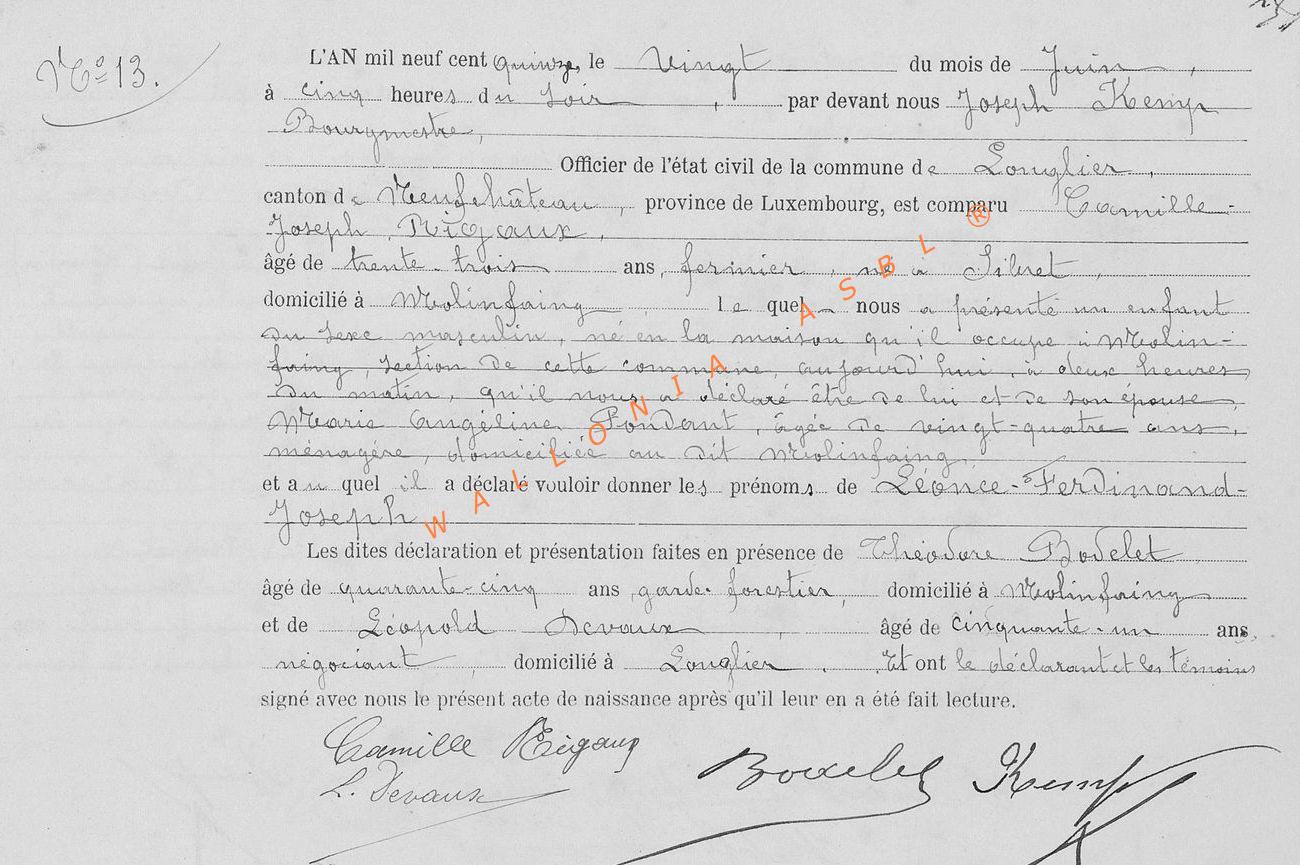 N° 13.
L'AN mil neuf cent quinze, le Vingt du mois de Juin,
à cinq heures du soir, par devant nous Joseph Kemp
Bourgmestre,
Officier de l'état civil de la commune de Longlier,
canton de Neufchâteau, province de Luxembourg, est comparu Camille-
Joseph Rigaux,
âgé de trente-trois ans, fermier, né à Sibret,
domicilié à Molinfaing, lequel nous a présenté un enfant
du sexe masculin, né en la maison qu'il occupe à Molin-
faing, section de cette commune, aujourd'hui, à deux heures
du matin, qu'il nous a déclaré être de lui et de son épouse,
Marie Angéline Pondant, âgée de vingt-quatre ans,
ménagère, domiciliée au dit Molinfaing,
et auquel il a déclaré vouloir donner les prénoms de Léonce-Ferdinand-
Joseph
Les dites déclaration et présentation faites en présence de Théodore Bodelet
âgé de quarante-cinq ans, garde forestier, domicilié à Molinfaing
et de Léopold Devaux, âgé de cinquante-un ans,
négociant, domicilié à Longlier. Et ont le déclarant et les témoins
signé avec nous le présent acte de naissance après qu'il leur en a été fait lecture.
Camille Rigaux
L. Devaux
Bodelet
Kemp
WALLONIA ASBL ®